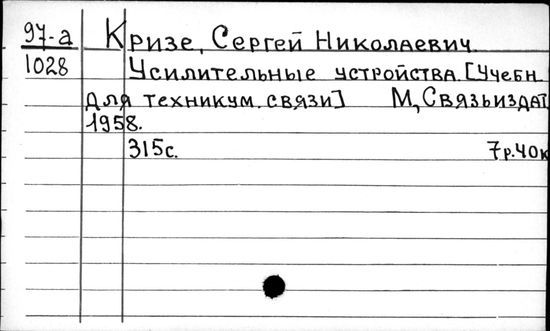 97-а Кризе, Сергей Николаевич.
1028 Усилительные устройства. [Учебн.
для техникум. связи] М, Связьиздат,
1958.
315с. 7р.40к